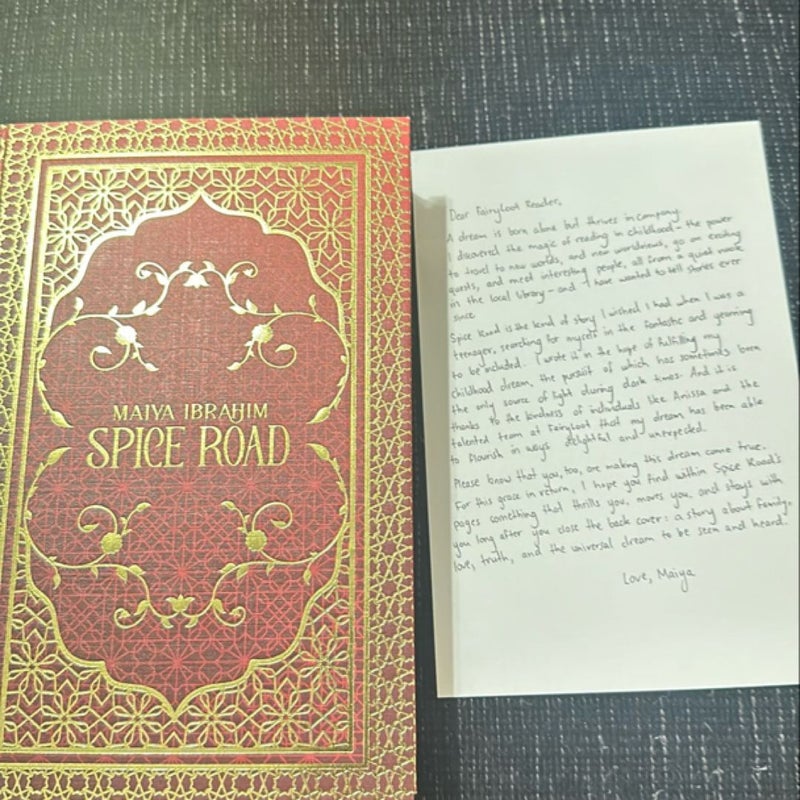 MAIYA IBRAHIM
SPICE ROAD
Dear Fairyloot Reader,
A dream is born alone but thrives in company.
I discovered the magic of reading in childhood – the power
to travel to new worlds, and new worldviews, go on exciting
quests, and meet interesting people, all from a quiet nook
in the local library – and I have wanted to tell stories ever
since.
Spice Road is the kind of story I wished I had when I was a
teenager, searching for myself in the fantastic and yearning
to be included. I wrote it in the hope of fulfilling my
childhood dream, the pursuit of which has sometimes been
the only source of light during dark times. And it is
thanks to the kindness of individuals like Anissa and the
talented team at Fairyloot that my dream has been able
to flourish in ways delightful and unexpected.
Please know that you, too, are making this dream come true.
For this grace in return, I hope you find within Spice Road's
pages something that thrills you, moves you, and stays with
you long after you close the back cover: a story about family,
love, truth, and the universal dream to be seen and heard.
Love, Maiya